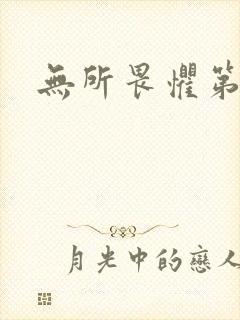 無所畏懼第
月光中的戀人